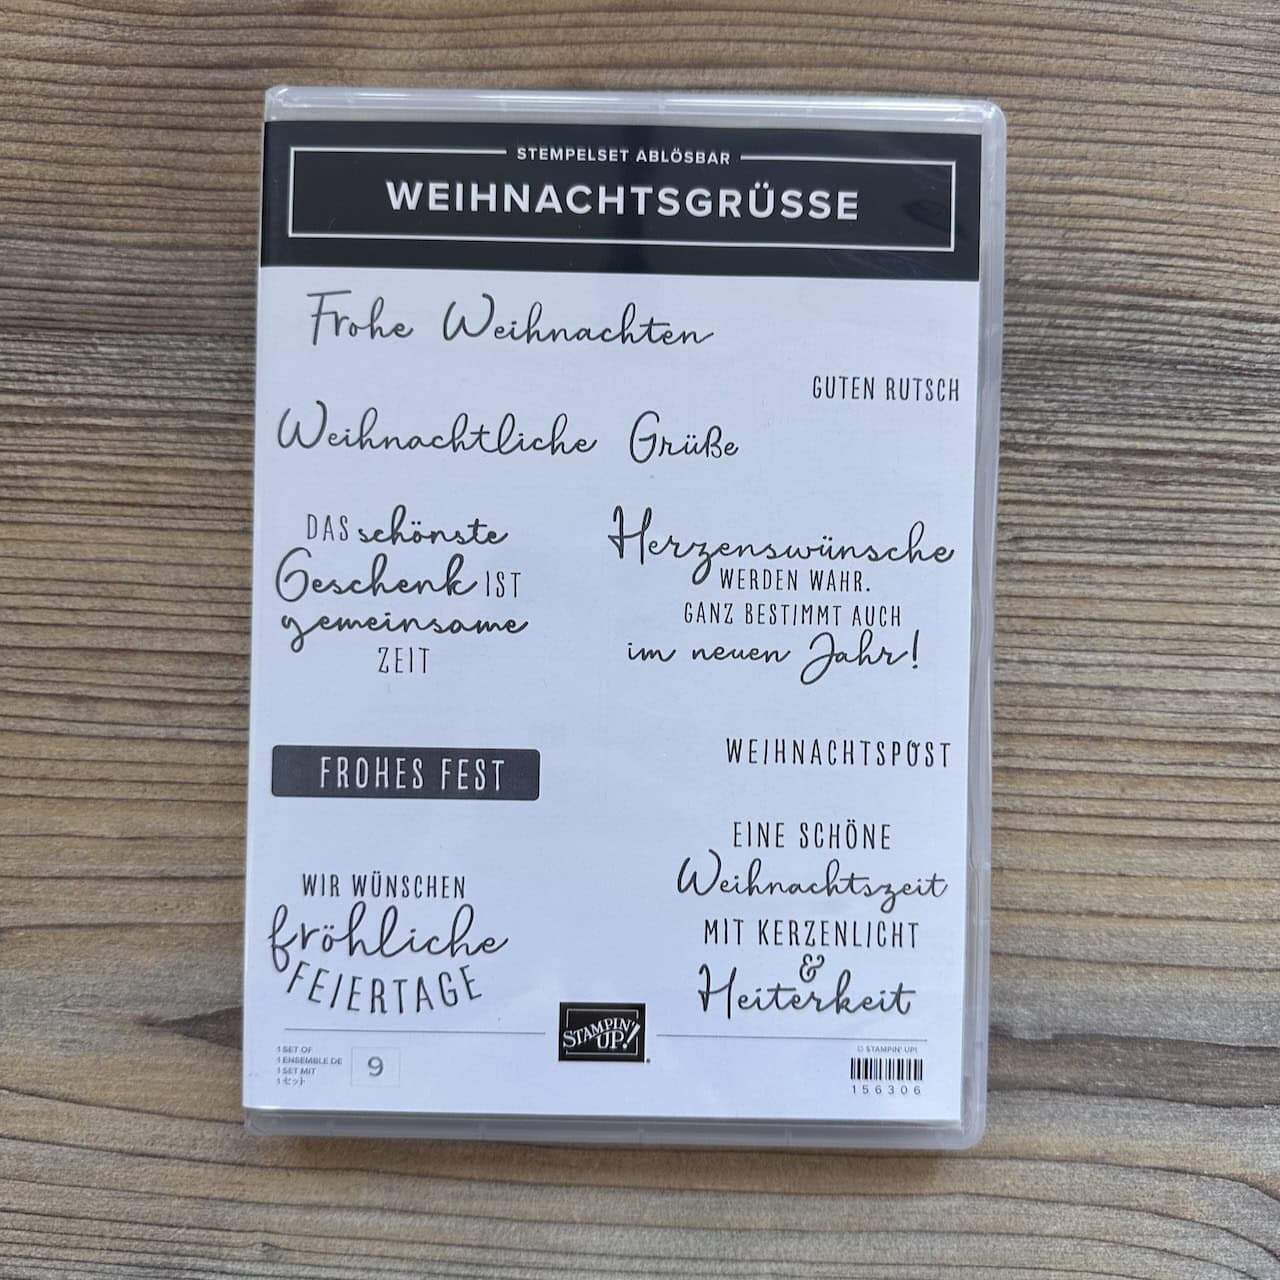 STEMPELSET ABLÖSBAR
WEIHNACHTSGRÜSSE
Frohe Weihnachten
GUTEN RUTSCH
Weihnachtliche Grüße
DAS schönste
Geschenk IST
gemeinsame
ZEIT
Herzenswünsche
WERDEN WAHR.
GANZ BESTIMMT AUCH
im neuen Jahr!
FROHES FEST
WEIHNACHTSPOST
WIR WÜNSCHEN
fröhliche
FEIERTAGE
EINE SCHÖNE
Weihnachtszeit
MIT KERZENLICHT
&
Heiterkeit
1 SET OF
1 ENSEMBLE DE
1 SET MIT
1 セット
9
STAMPIN'
UP!
© STAMPIN' UP!
156306